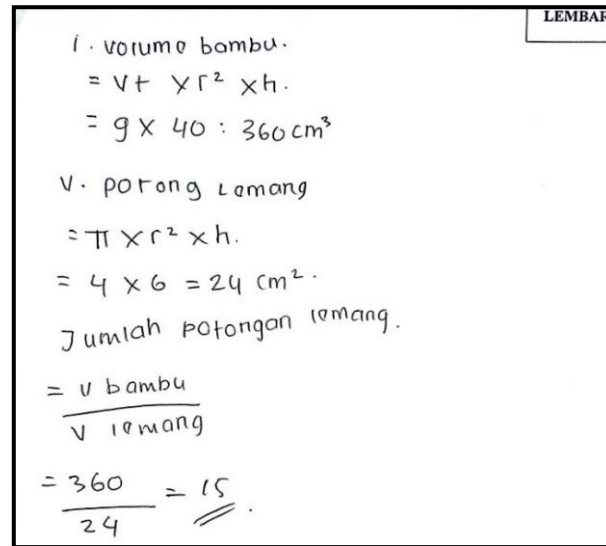 LEMBAR
1. volume bambu.
= Vt × r² × h.
= 9 × 40 : 360 cm³
V. potong Lemang
= π × r² × h.
= 4 × 6 = 24 cm².
Jumlah potongan lemang.
= V bambu
V lemang
= 360 = 15
24